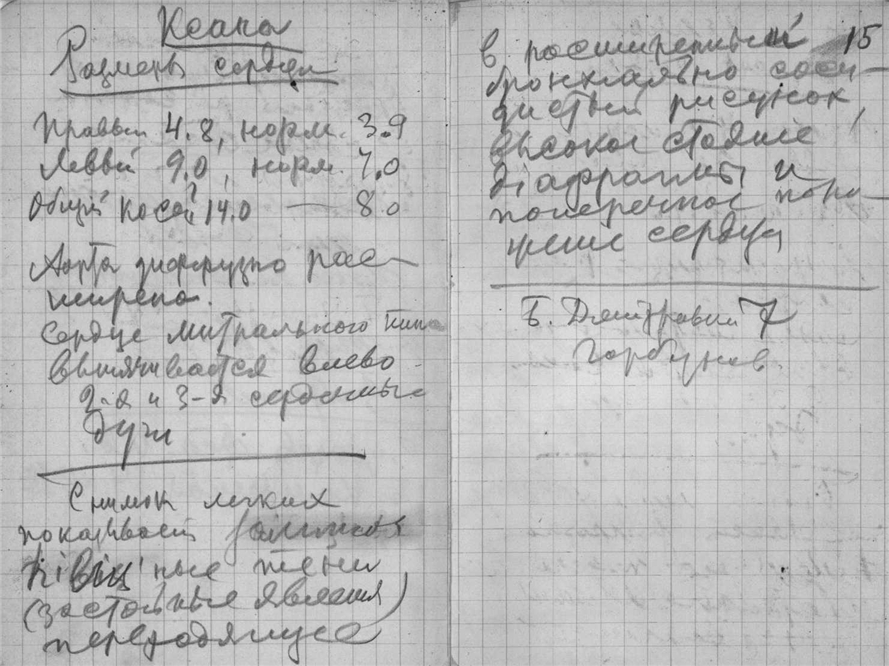 Ксана
Размеры сердца
Правый 4.8, норм. 3.9
Левый 9.0, норм. 7.0
Общий косой 14.0 — 8.0
Аорта диффузно рас-
ширена.
Сердце митрального типа
выпячивается влево
2-я и 3-я сердечные
дуги
Снимок легких
показывает
тени
(застойные явления)
переходящие
15
в расширенный
бронхиально сосу-
дистый рисунок,
высокое стояние
діафрагмы и
поперечное поло-
жение сердца
Б. Дмитровка 7
Горбунов